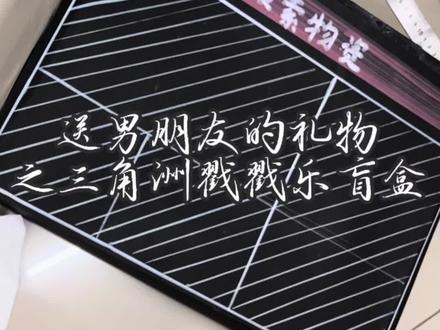 索物瓷
送男朋友的礼物
之三角洲戳戳乐盲盒